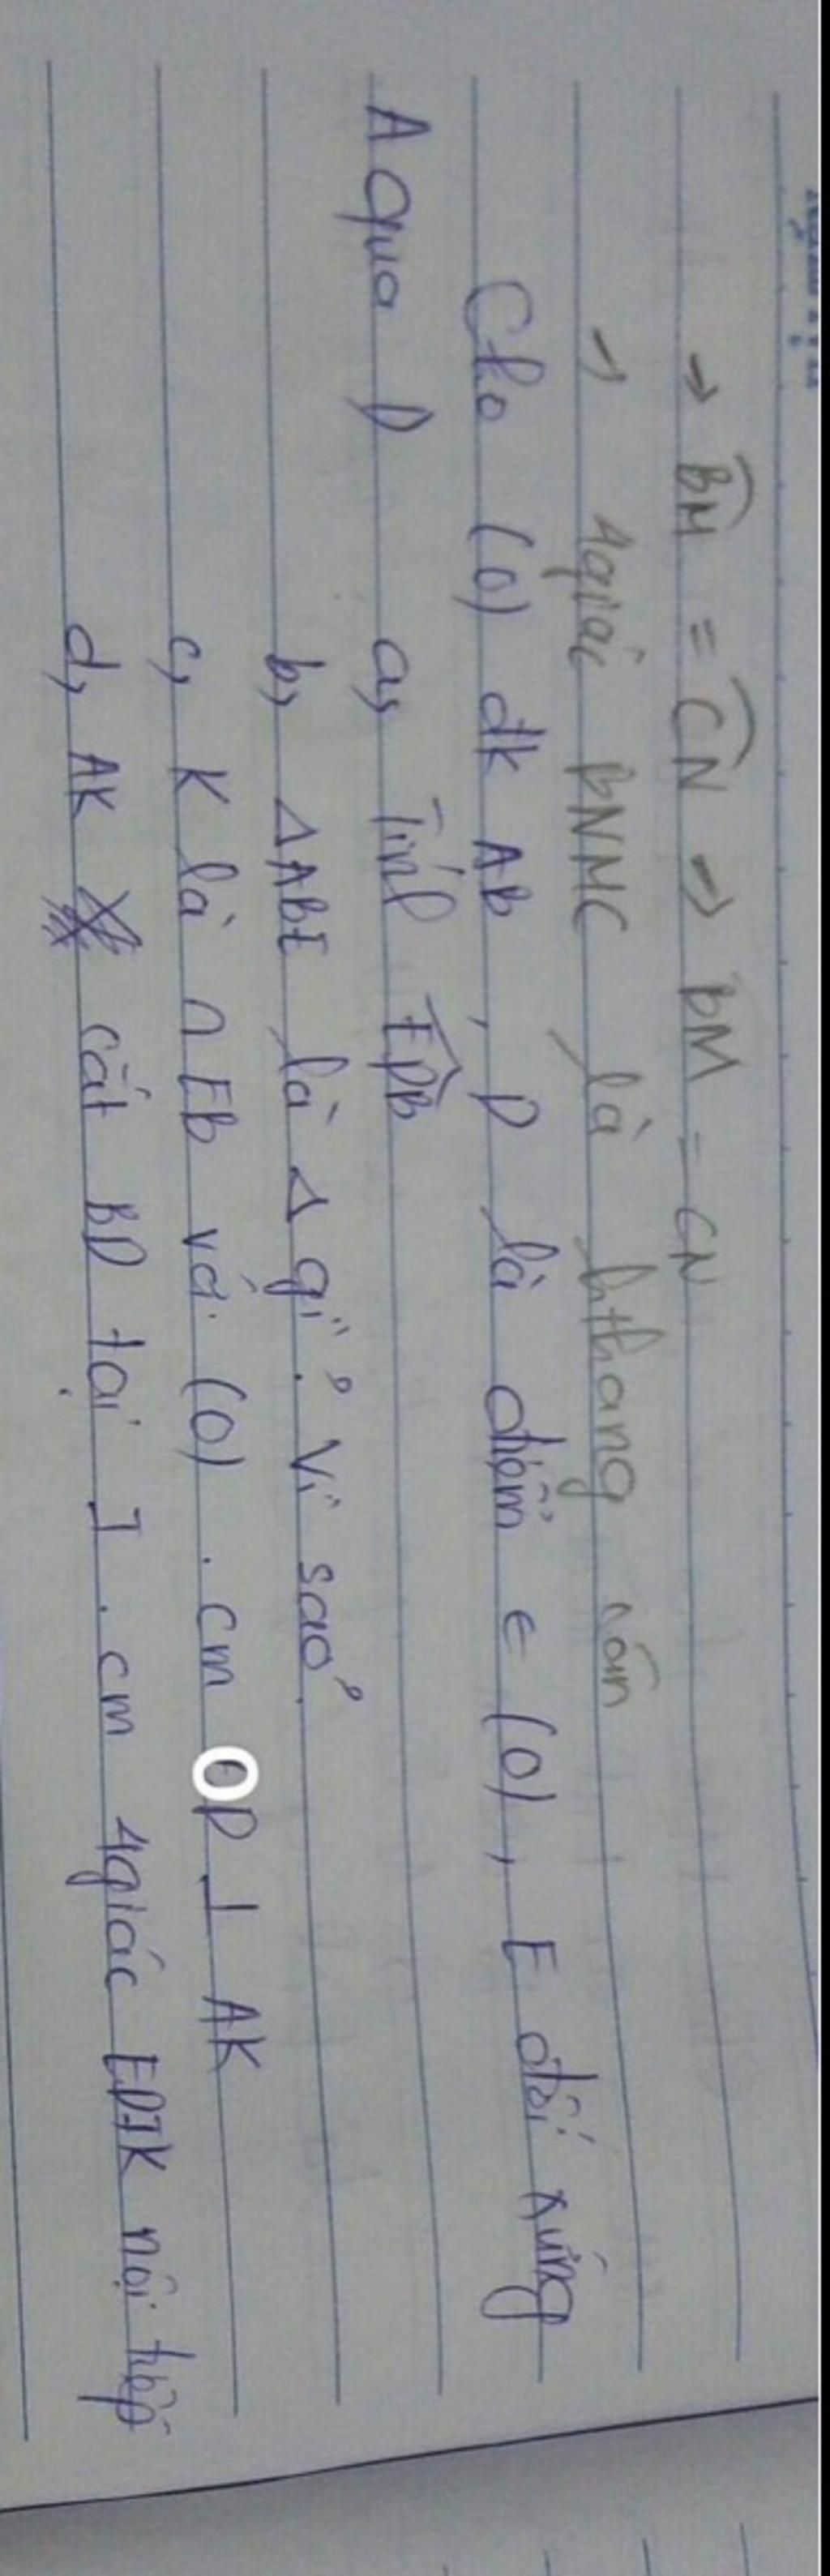 → BM = CN → BM = CN
→ 4giác BNMC là hthang cân
Cho (O) đk AB, D là điểm ∈ (O), E đối xứng
A qua D a, Tính EDB
b, ΔABE là Δ gì? Vì sao?
c, K là ∩ EB và (O). cm OD ⊥ AK
d, AK cắt BD tại I. cm 4giác EDIK nội tiếp